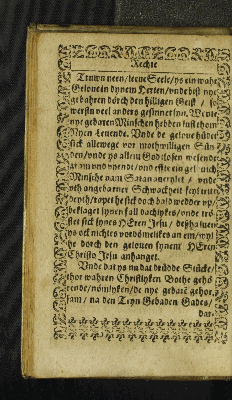 Rechte
Truwn neen/leeve Seele/ys ein wahr
Gelove in dynem Herten/unde bist nye
gebahren dörch den hilligen Geist/so
werstu veel anders gesinnet syn. Wente
nye gebaren Minschen hebben lust thom
Nyen Levende. Unde de gelove hüdet
sick allewege vor mothwilligen Sün
den/unde ys allem Godtlosen wesende
gram unde vyendt/unde effte ein gelövich
Minsche vam Satan
uth angebarner Schwackheit feyl
deyth/rapet he sick doch bald wedder up/
beklaget synen fall dachlykes/unde trö
stet sick synes HEren Jesu/deßhalven
ys ock nichtes vordömelikes an em/wyl
he dörch den geloven synem HEren
Christo Jesu anhanget.
Unde dat ys nu dat drüdde Stücke/
thor wahren Christlyken Bothe gehö
rende/nömlyken/de nye gehor
sam/na den Teyn Gebaden Gades/
dar-